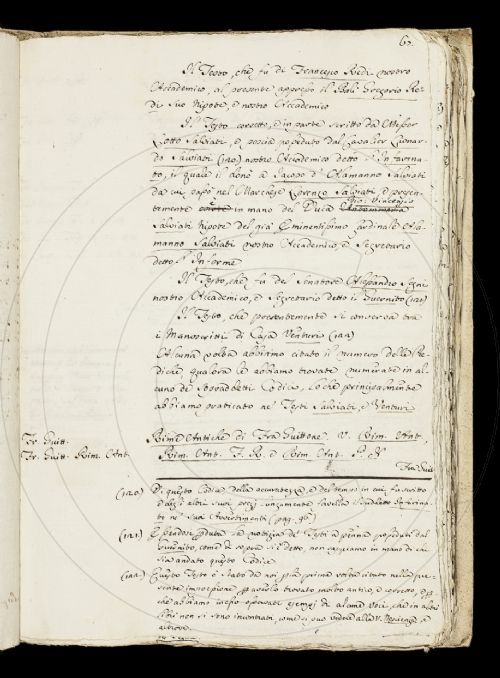 63.
Il Testo, che fu di Francesco Redi nostro
Accademico, al presente appresso il Bali Gregorio Re-
di suo Nipote, e nostro Accademico
Il Testo corretto, e in parte scritto da Messer
Lotto Salviati, e poscia posseduto dal Cavalier Lionar-
do Salviati (120) nostro Accademico detto l'Infarina-
to, il quale il donò a Jacopo d'Alamanno Salviati
da cui passò nel Marchese Lorenzo Salviati, e presen-
temente in mano del Duca
Gio: Vincenzio
Salviati Nipote del già Eminentissimo Cardinale Ala-
manno Salviati nostro Accademico, e Segretario
detto l'Informe
Il Testo, che fu del Senatore Alessandro Segni
nostro Accademico, e Segretario detto il Guernito (121)
Il Testo, che presentemente si conserva tra
i Manoscritti di Casa Venturi (122)
Alcuna volta abbiamo citato il numero delle Pre-
diche qualora le abbiamo trovate numerate in al-
cuno de' Sopraddetti Codici, lo che principalmente
abbiamo praticato ne' Testi Salviati, e Venturi
Fr. Guitt.
Rime Antiche di Fra Guittone. V. Rim. Ant.
Fr. Guitt. Rim. Ant.
Rim. Ant. F. R. e Rim. Ant. P. N
Fra Guit
(120) Di questo Codice della accuratezza, e del tempo in cui fu scritto
e degli altri suoi pregi lungamente favella l'Infarina-
to ne' suoi Avvertimenti (pag. 96)
(121) Essendosi perduta la notizia de' Testi a penna posseduti dal
Guernito, come di sopra si è detto, non sappiamo in mano di chi
sia andato questo Codice
(122) Questo Testo è stato da noi per la prima volta citato nella pre-
sente impressione per averlo trovato molto antico, e corretto, e per
che abbiamo in esso osservati esempj di alcune voci, che in altri
libri non si sono incontrati, come si può vedere alla V.
altrove.